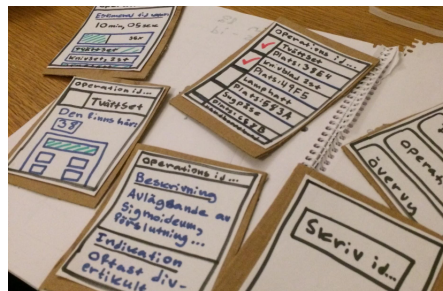 Estimerad tid
10 min, 05 sek
Tvättset
Operation id...
Tvättset
Den finns här:
38
Operations id...
Tvättset
Plats: 38E4
Knivblad 3st
Plats: 49F5
Lamphatt
Sugpåse
Operations id...
Beskrivning
Avlägsnande av
Sigmoideum,
förslutning...
Indikation
Oftast div-
ertikulit
Skriv id...
Operati
översy